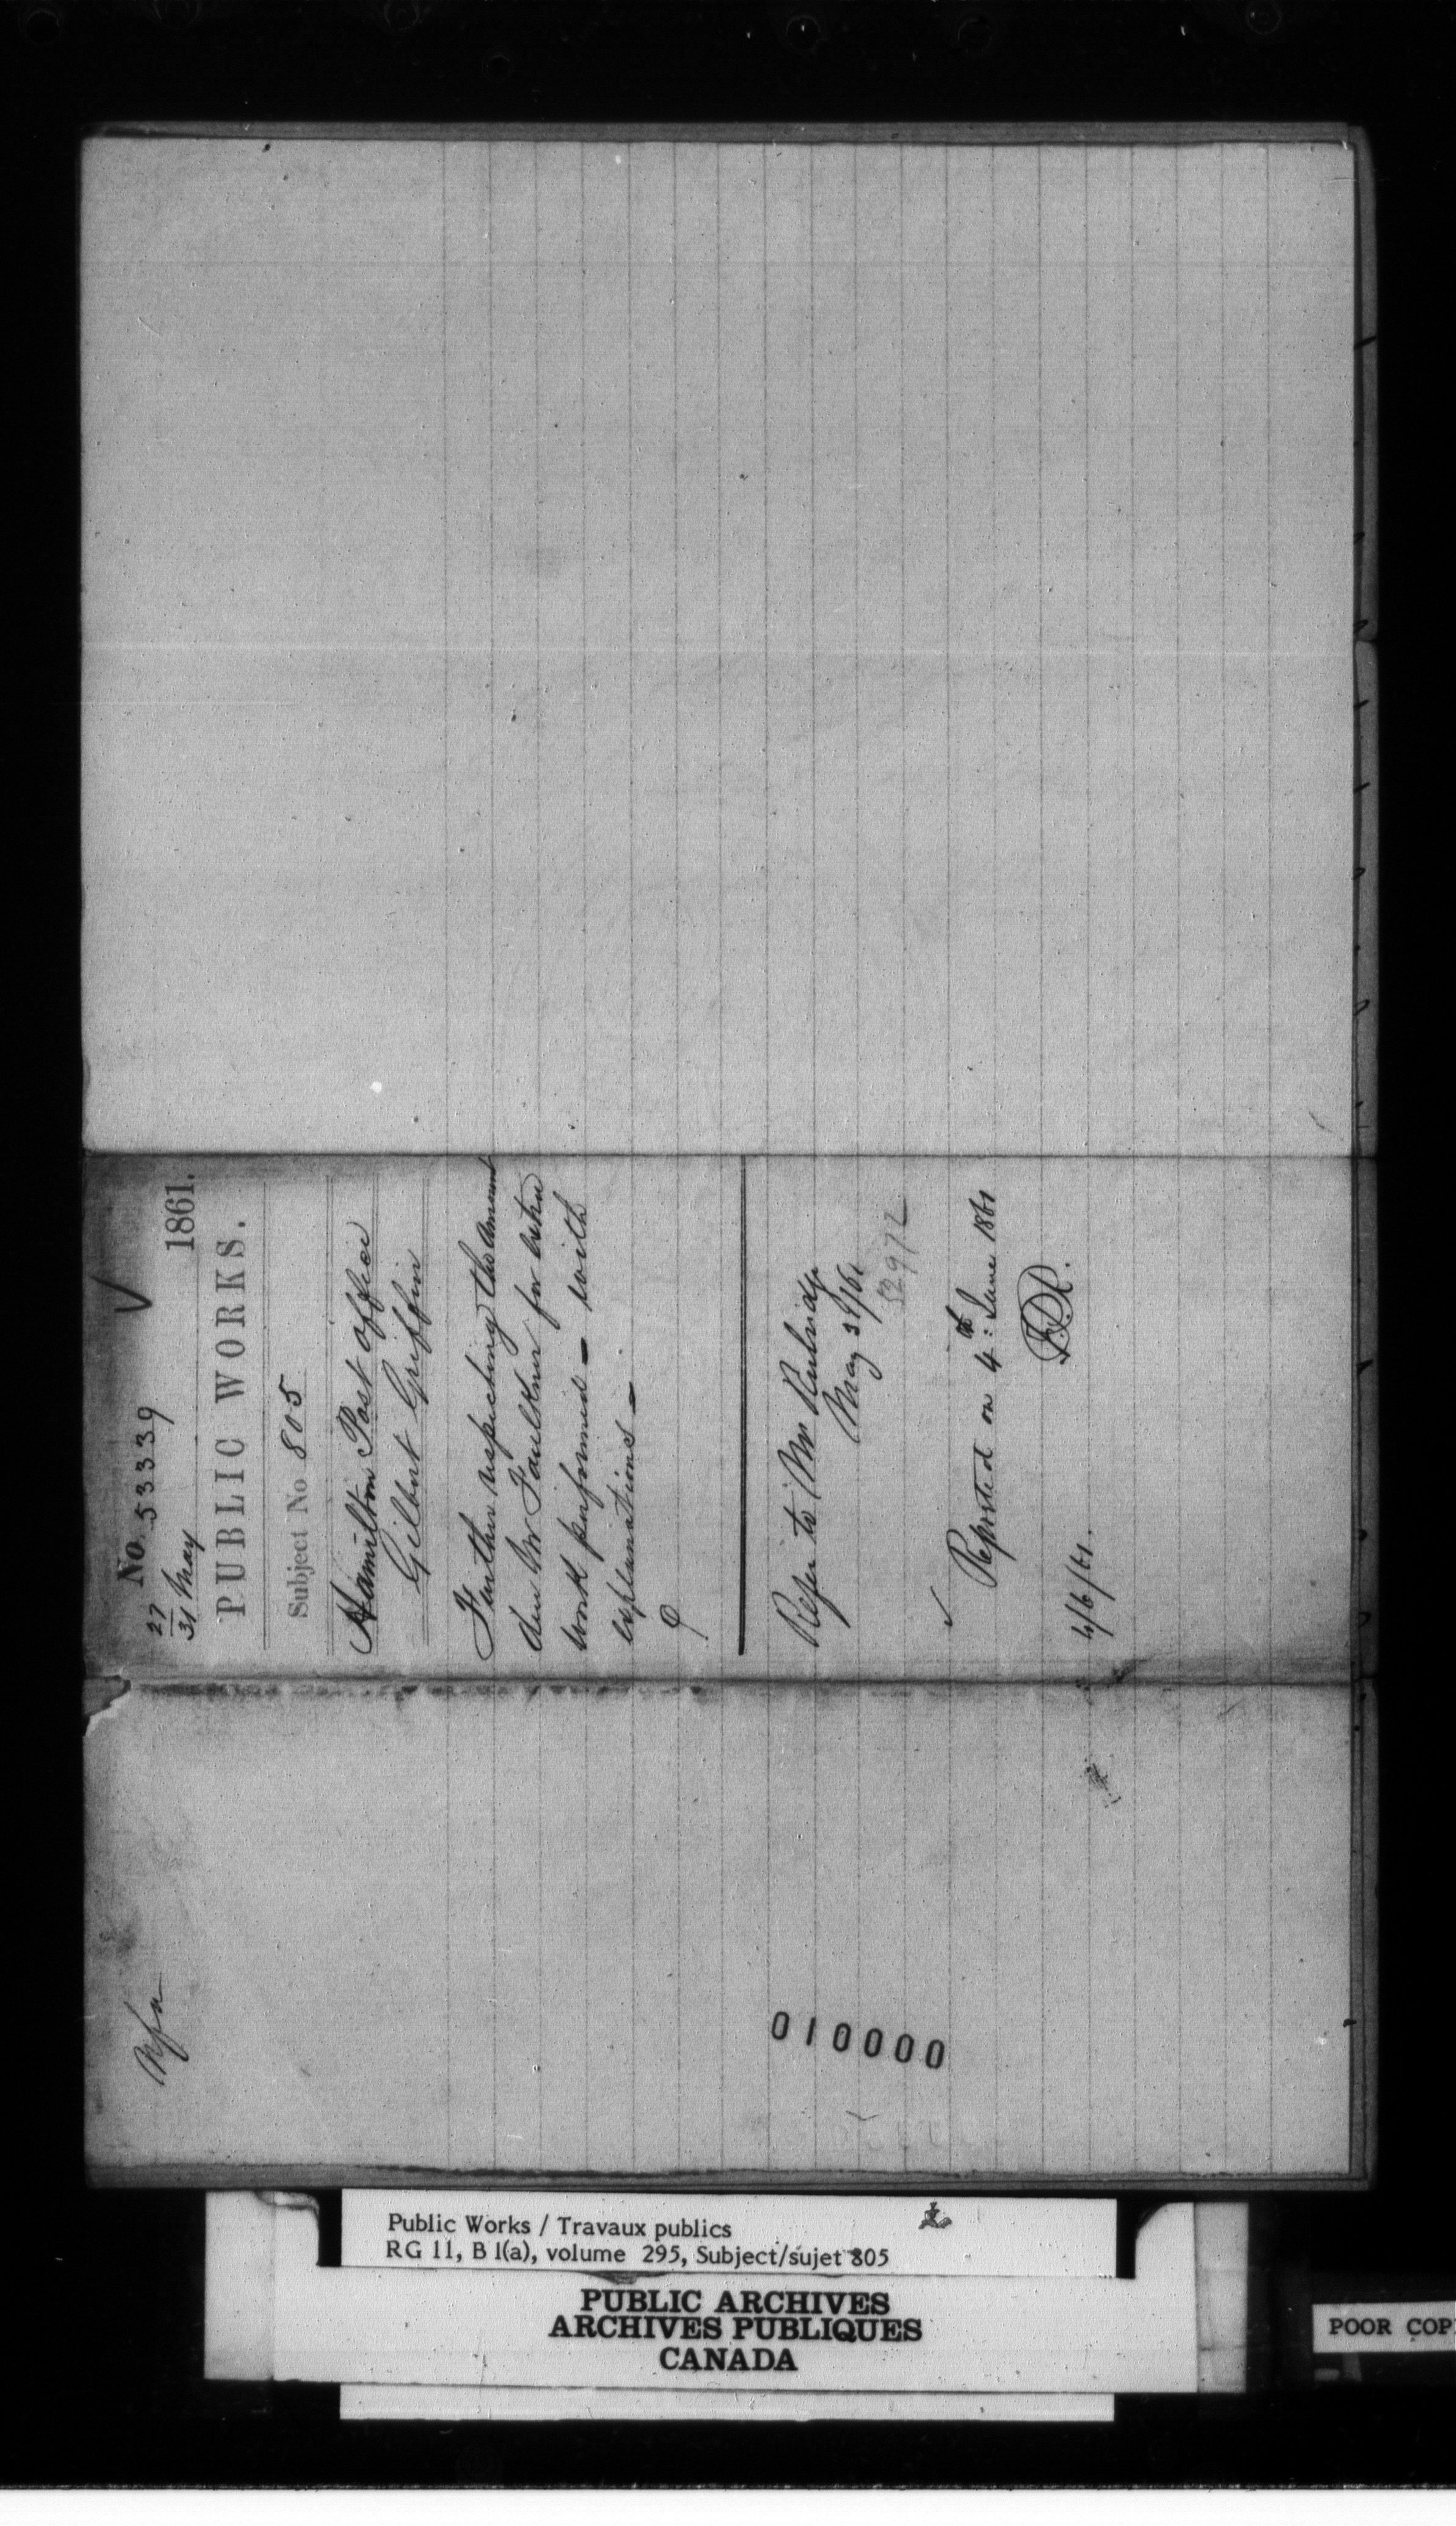 No. 53339
27
31 May
1861.
PUBLIC WORKS.
Subject No 805
Hamilton Post Office
Gilbert Griffin
Further respecting the amount
due Mr Faulkner for extra
work performed - with
explanations -
Refer to Mr Rubidge
May 31/61
52972
Reported on 4th June 1861
4/6/61.
010000
Public Works / Travaux publics
RG 11, B 1(a), volume 295, Subject/sujet 805
PUBLIC ARCHIVES
ARCHIVES PUBLIQUES
CANADA
POOR COP